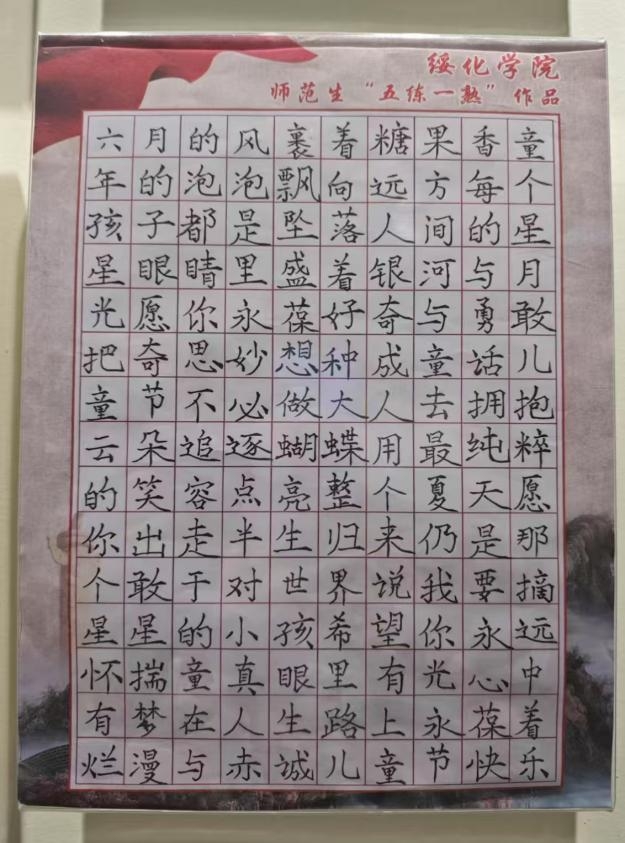 绥化学院
师范生“五练一熟”作品
六月的风裹着糖果香童
年的泡泡飘向远方每个
孩子都是坠落人间的星
星眼睛里盛着银河与月
光愿你永葆好奇与勇敢
把奇思妙想种成童话儿
童节不必做大人去拥抱
云朵追逐蝴蝶用最纯粹
的笑容点亮整个夏天愿
你出走半生归来仍是那
个敢于对世界说我要摘
星星的小孩希望你永远
怀揣童真眼里有光心中
有梦在人生路上永葆着
烂漫与赤诚儿童节快乐